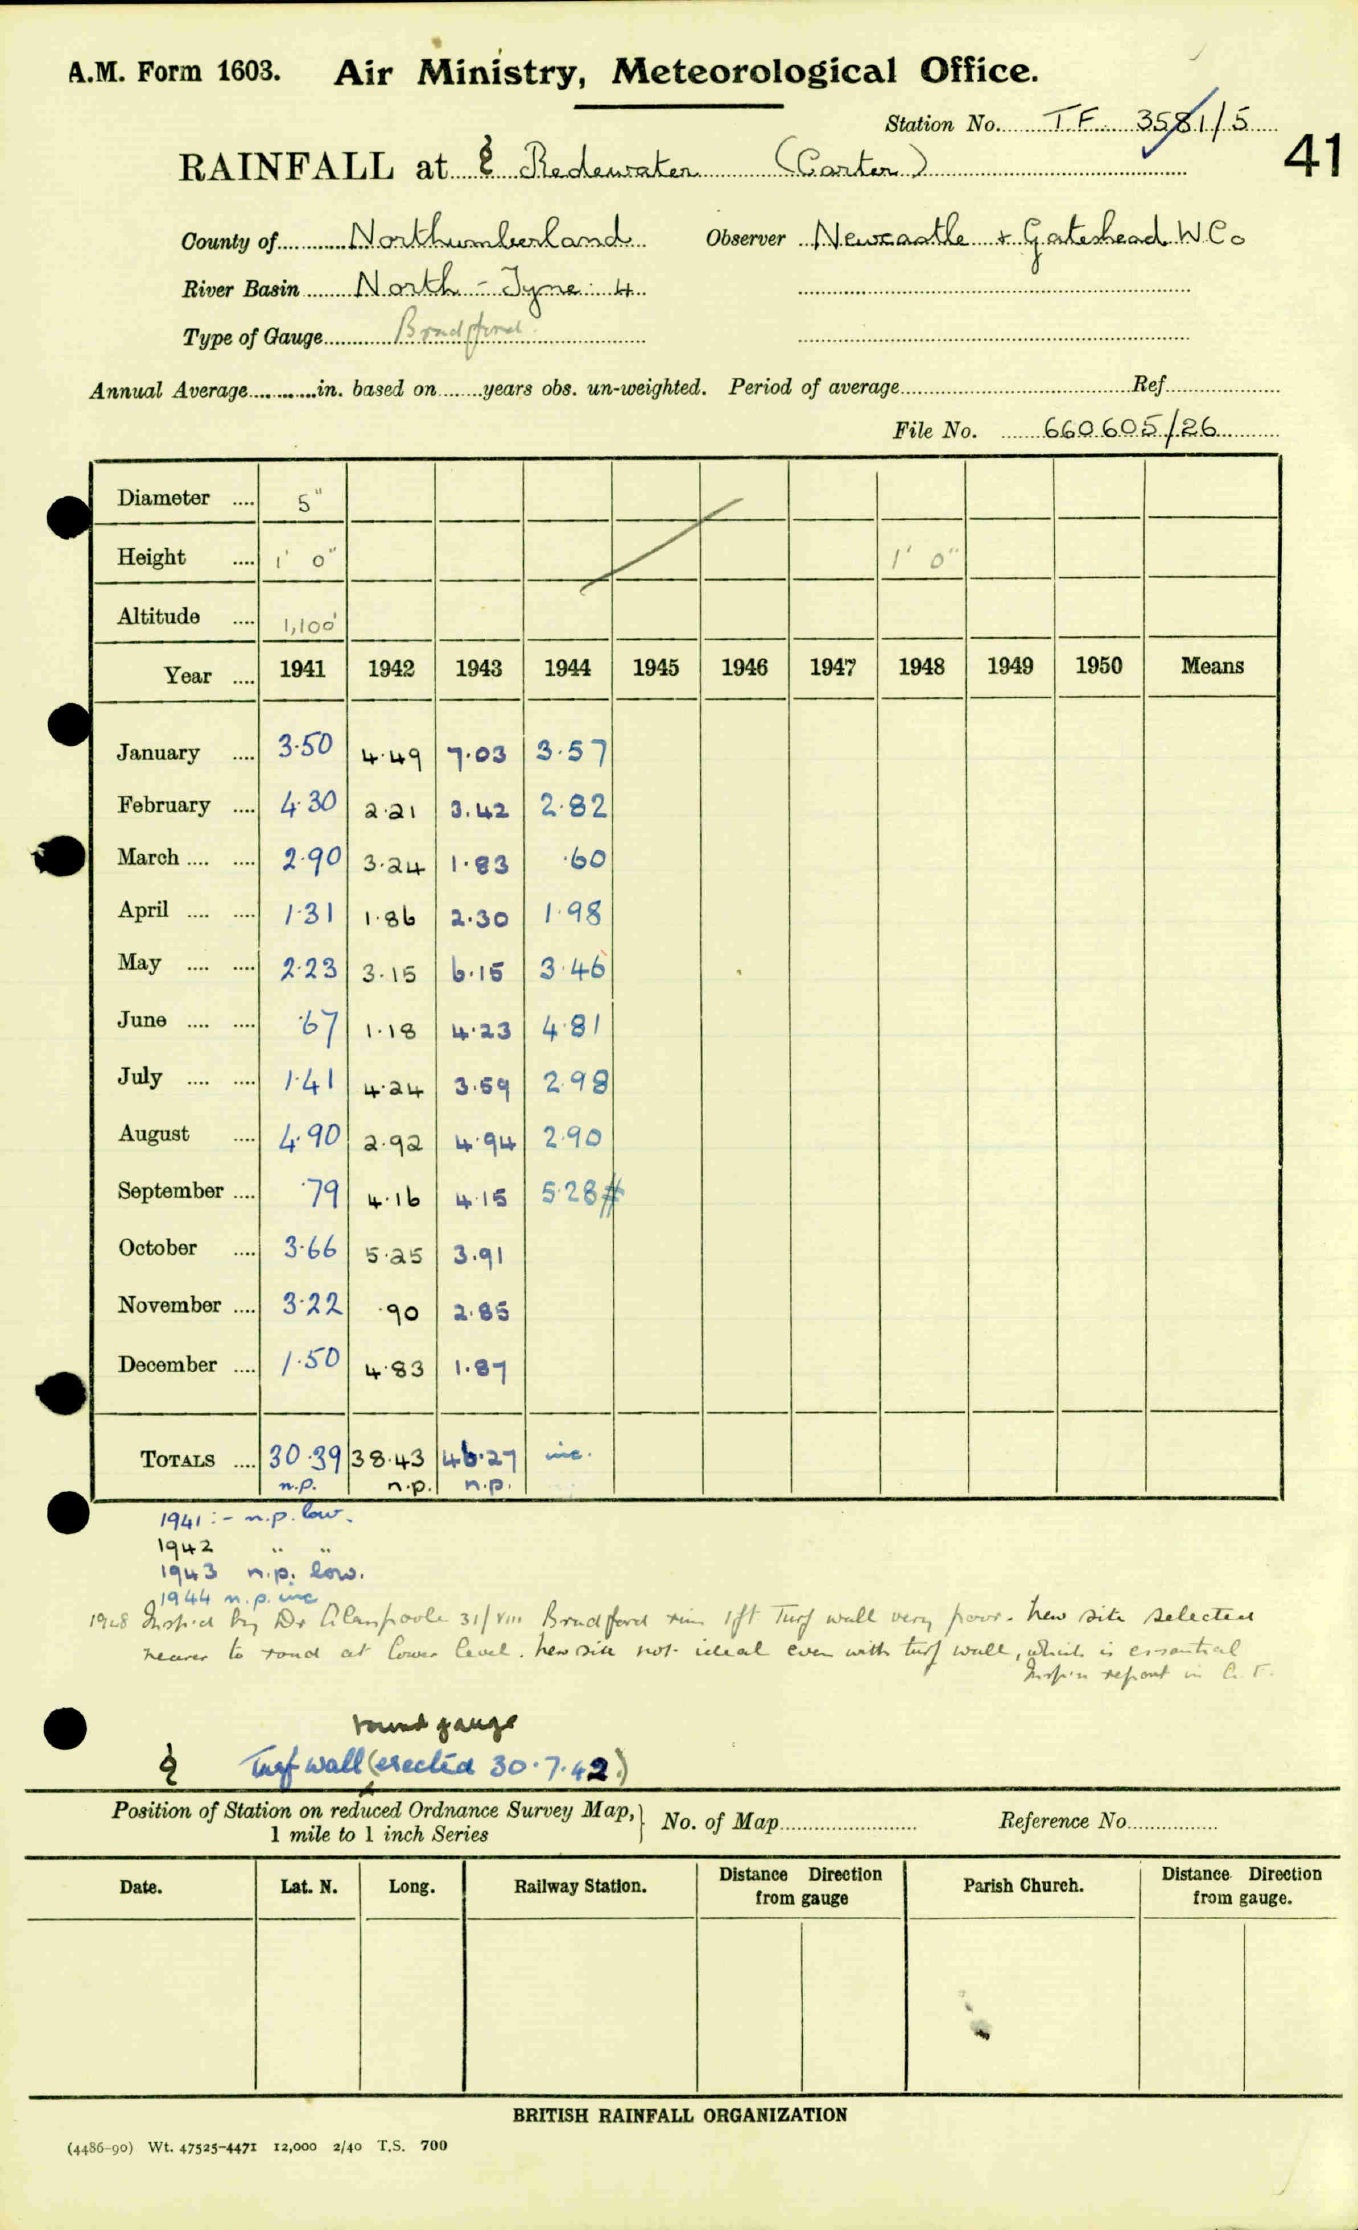 A.M. Form 1603. Air Ministry, Meteorological Office.
Station No. T.F. 3581/5
41
RAINFALL at Redewater (Carter)
County of Northumberland Observer Newcastle + Gateshead W Co
River Basin North - Tyne 4
Type of Gauge Bradford
Annual Average in. based on years obs. un-weighted. Period of average Ref
File No. 660605/26
Diameter 5"
Height 1' 0" 1' 0"
Altitude 1,100'
Year 1941 1942 1943 1944 1945 1946 1947 1948 1949 1950 Means
January 3.50 4.49 7.03 3.57
February 4.30 2.21 3.42 2.82
March 2.90 3.24 1.83 .60
April 1.31 1.86 2.30 1.98
May 2.23 3.15 6.15 3.46
June .67 1.18 4.23 4.81
July 1.41 4.24 3.59 2.98
August 4.90 2.92 4.94 2.90
September .79 4.16 4.15 5.28#
October 3.66 5.25 3.91
November 3.22 .90 2.85
December 1.50 4.83 1.87
TOTALS 30.39 38.43 46.27 inc.
n.p. n.p. n.p.
1941 :- n.p. low.
1942 " "
1943 n.p. low.
1944 n.p. inc
1948 Insp'd by Dr Glasspoole 31/VIII Bradford rim 1ft Turf wall very poor. New site selected
nearer to road at lower level. New site not ideal even with turf wall, which is essential
Insp'n report in
round gauge
Turf wall (erected 30.7.42.)
Position of Station on reduced Ordnance Survey Map, No. of Map Reference No.
1 mile to 1 inch Series
Date. Lat. N. Long. Railway Station. Distance Direction from gauge Parish Church. Distance Direction from gauge.
BRITISH RAINFALL ORGANIZATION
(4486-90) Wt. 47525-4471 12,000 2/40 T.S. 700